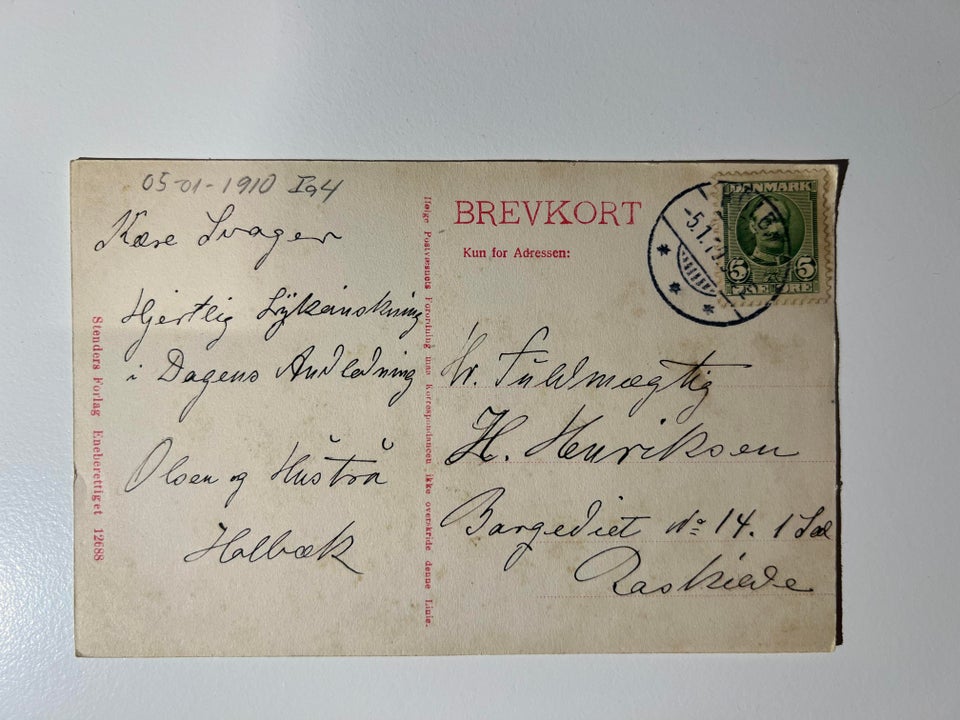 05-01-1910
Kære Svager
Hjertlig Lykønskning
i Dagens Andledning
Olsen og Hustru
Holbæk
Stenders Forlag Eneberettiget 12688
Ifølge Postvæsnets Forordning maa Korrespondancen ikke overskride denne Linie.
BREVKORT
Kun for Adressen:
DANMARK
5 5
ØRE
-5.1.
Hr. Fuldmægtig
H. Henriksen
No 14. 1 Sal
Roskilde